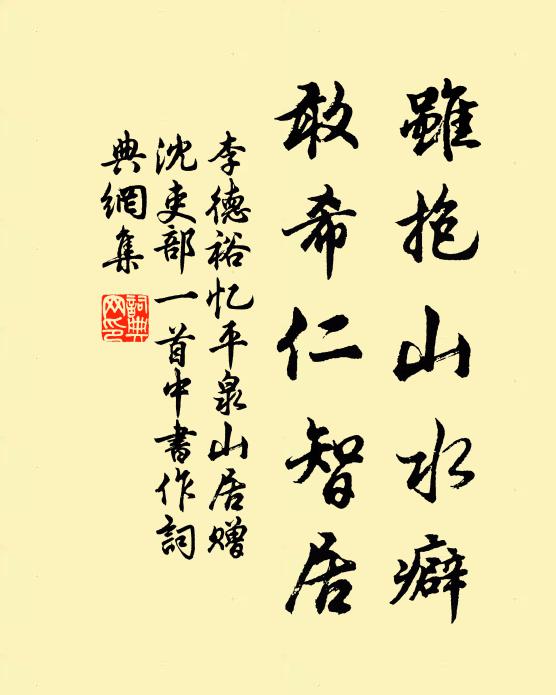 雖抱山水癖
敢希仁智居
李德裕忆平泉山居赠
沈吏部一首中書作詞
典網集
詞典網印